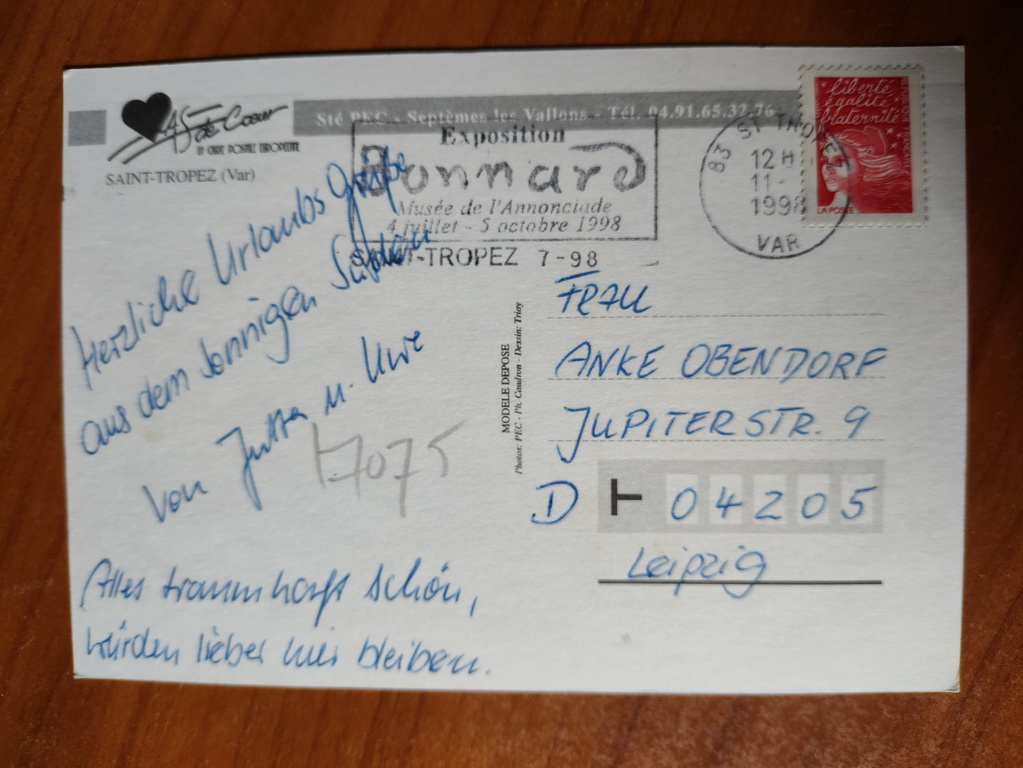 AS de Cœur
LA CARTE POSTALE EUROPEENNE
SAINT-TROPEZ (Var)
Sté PEC - Septèmes-les-Vallons - Tél. 04.91.65.37.76
Exposition
Bonnard
Musée de l'Annonciade
4 juillet - 5 octobre 1998
SAINT-TROPEZ 7-98
83 ST TROPEZ
12 H
11-
1998
VAR
liberté
égalité
fraternité
LA POSTE
Herzliche Urlaubs Grüße
aus dem sonnigen Süden
von Jutta u. Uwe
17075
Alles traumhaft schön,
würden lieber hier bleiben.
MODELE DEPOSE
Photos: PEC - Ph. Caudron - Dessin: Trioy
FRAU
ANKE OBENDORF
JUPITERSTR. 9
D 04205
Leipzig